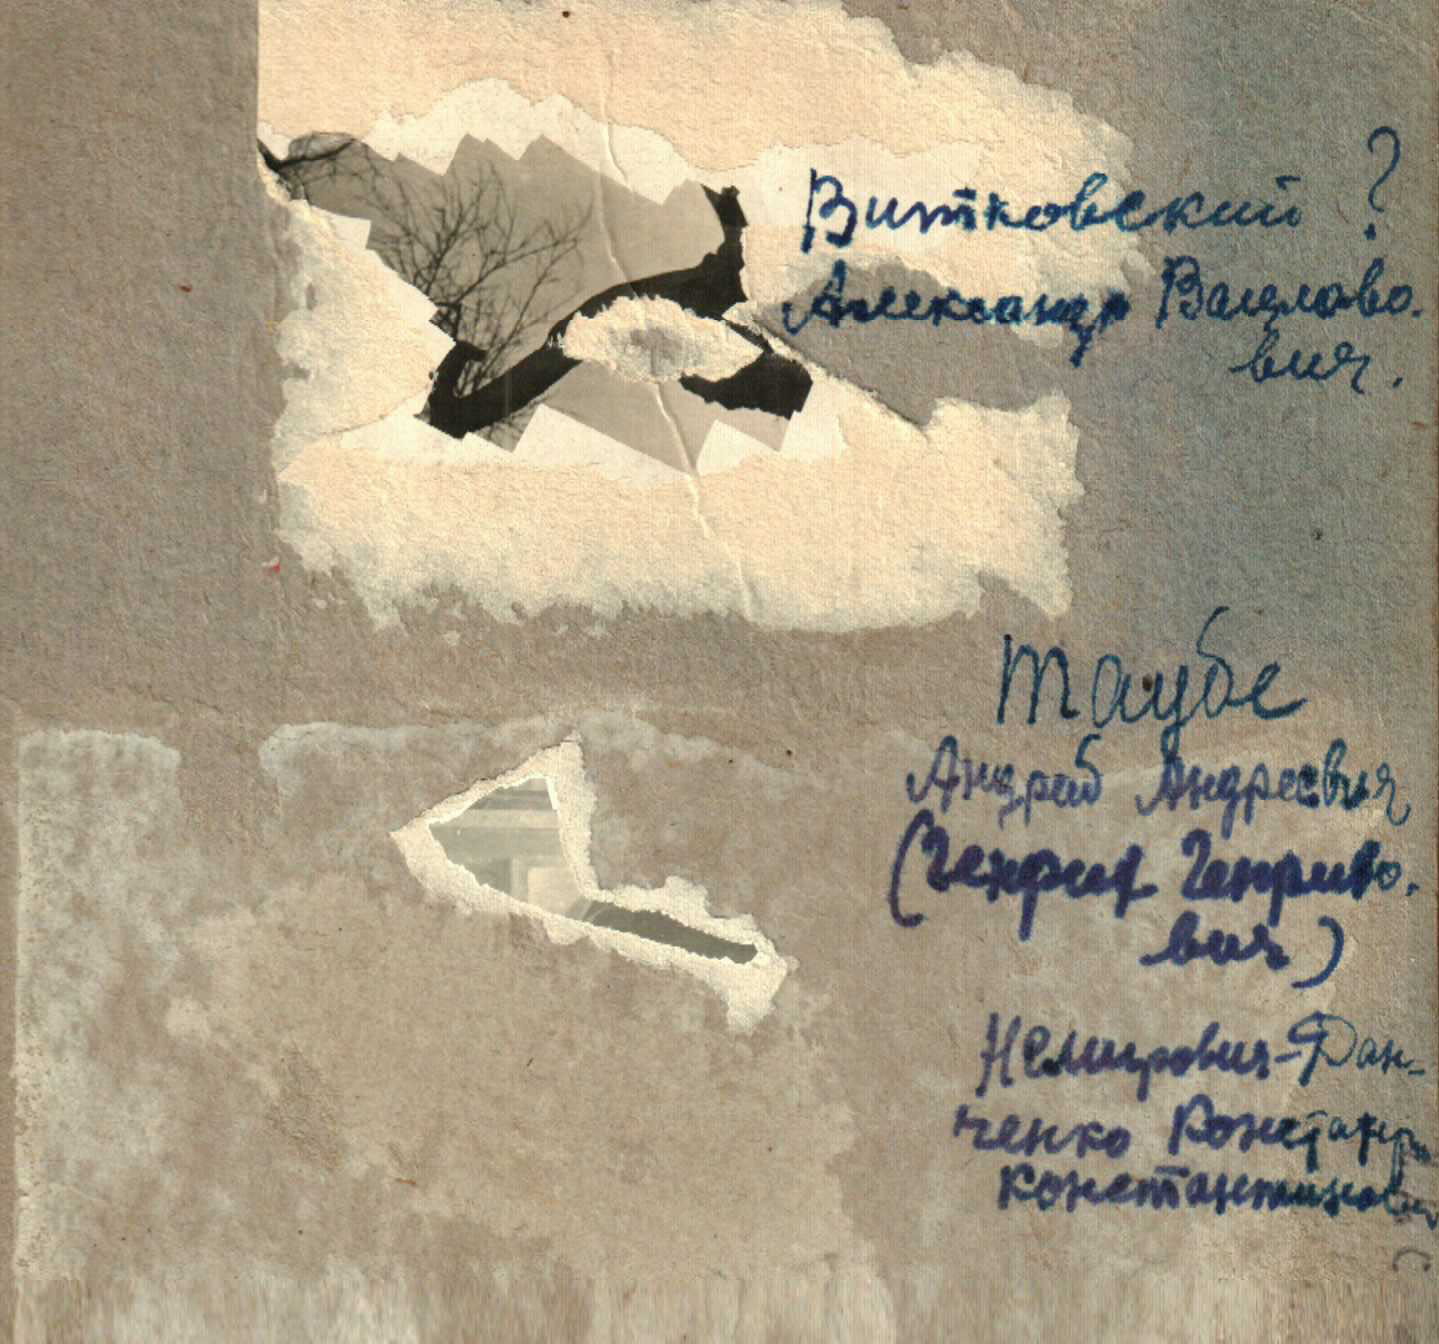 Витковский ?
Александр Вацлаво.
вич.
Таубе
Андрей Андреевич
(Генрих Генрихо.
вич)
Немирович-Дан-
ченко Констант
Константинови